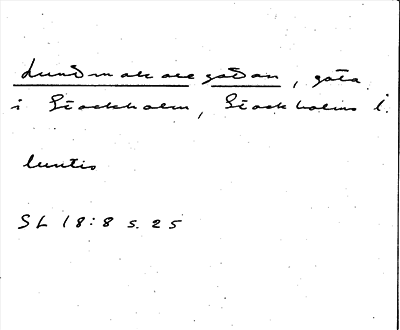 Luntmakaregatan, gata
i Stockholm, Stockholms l.
luntis
SL 18:8 s. 25